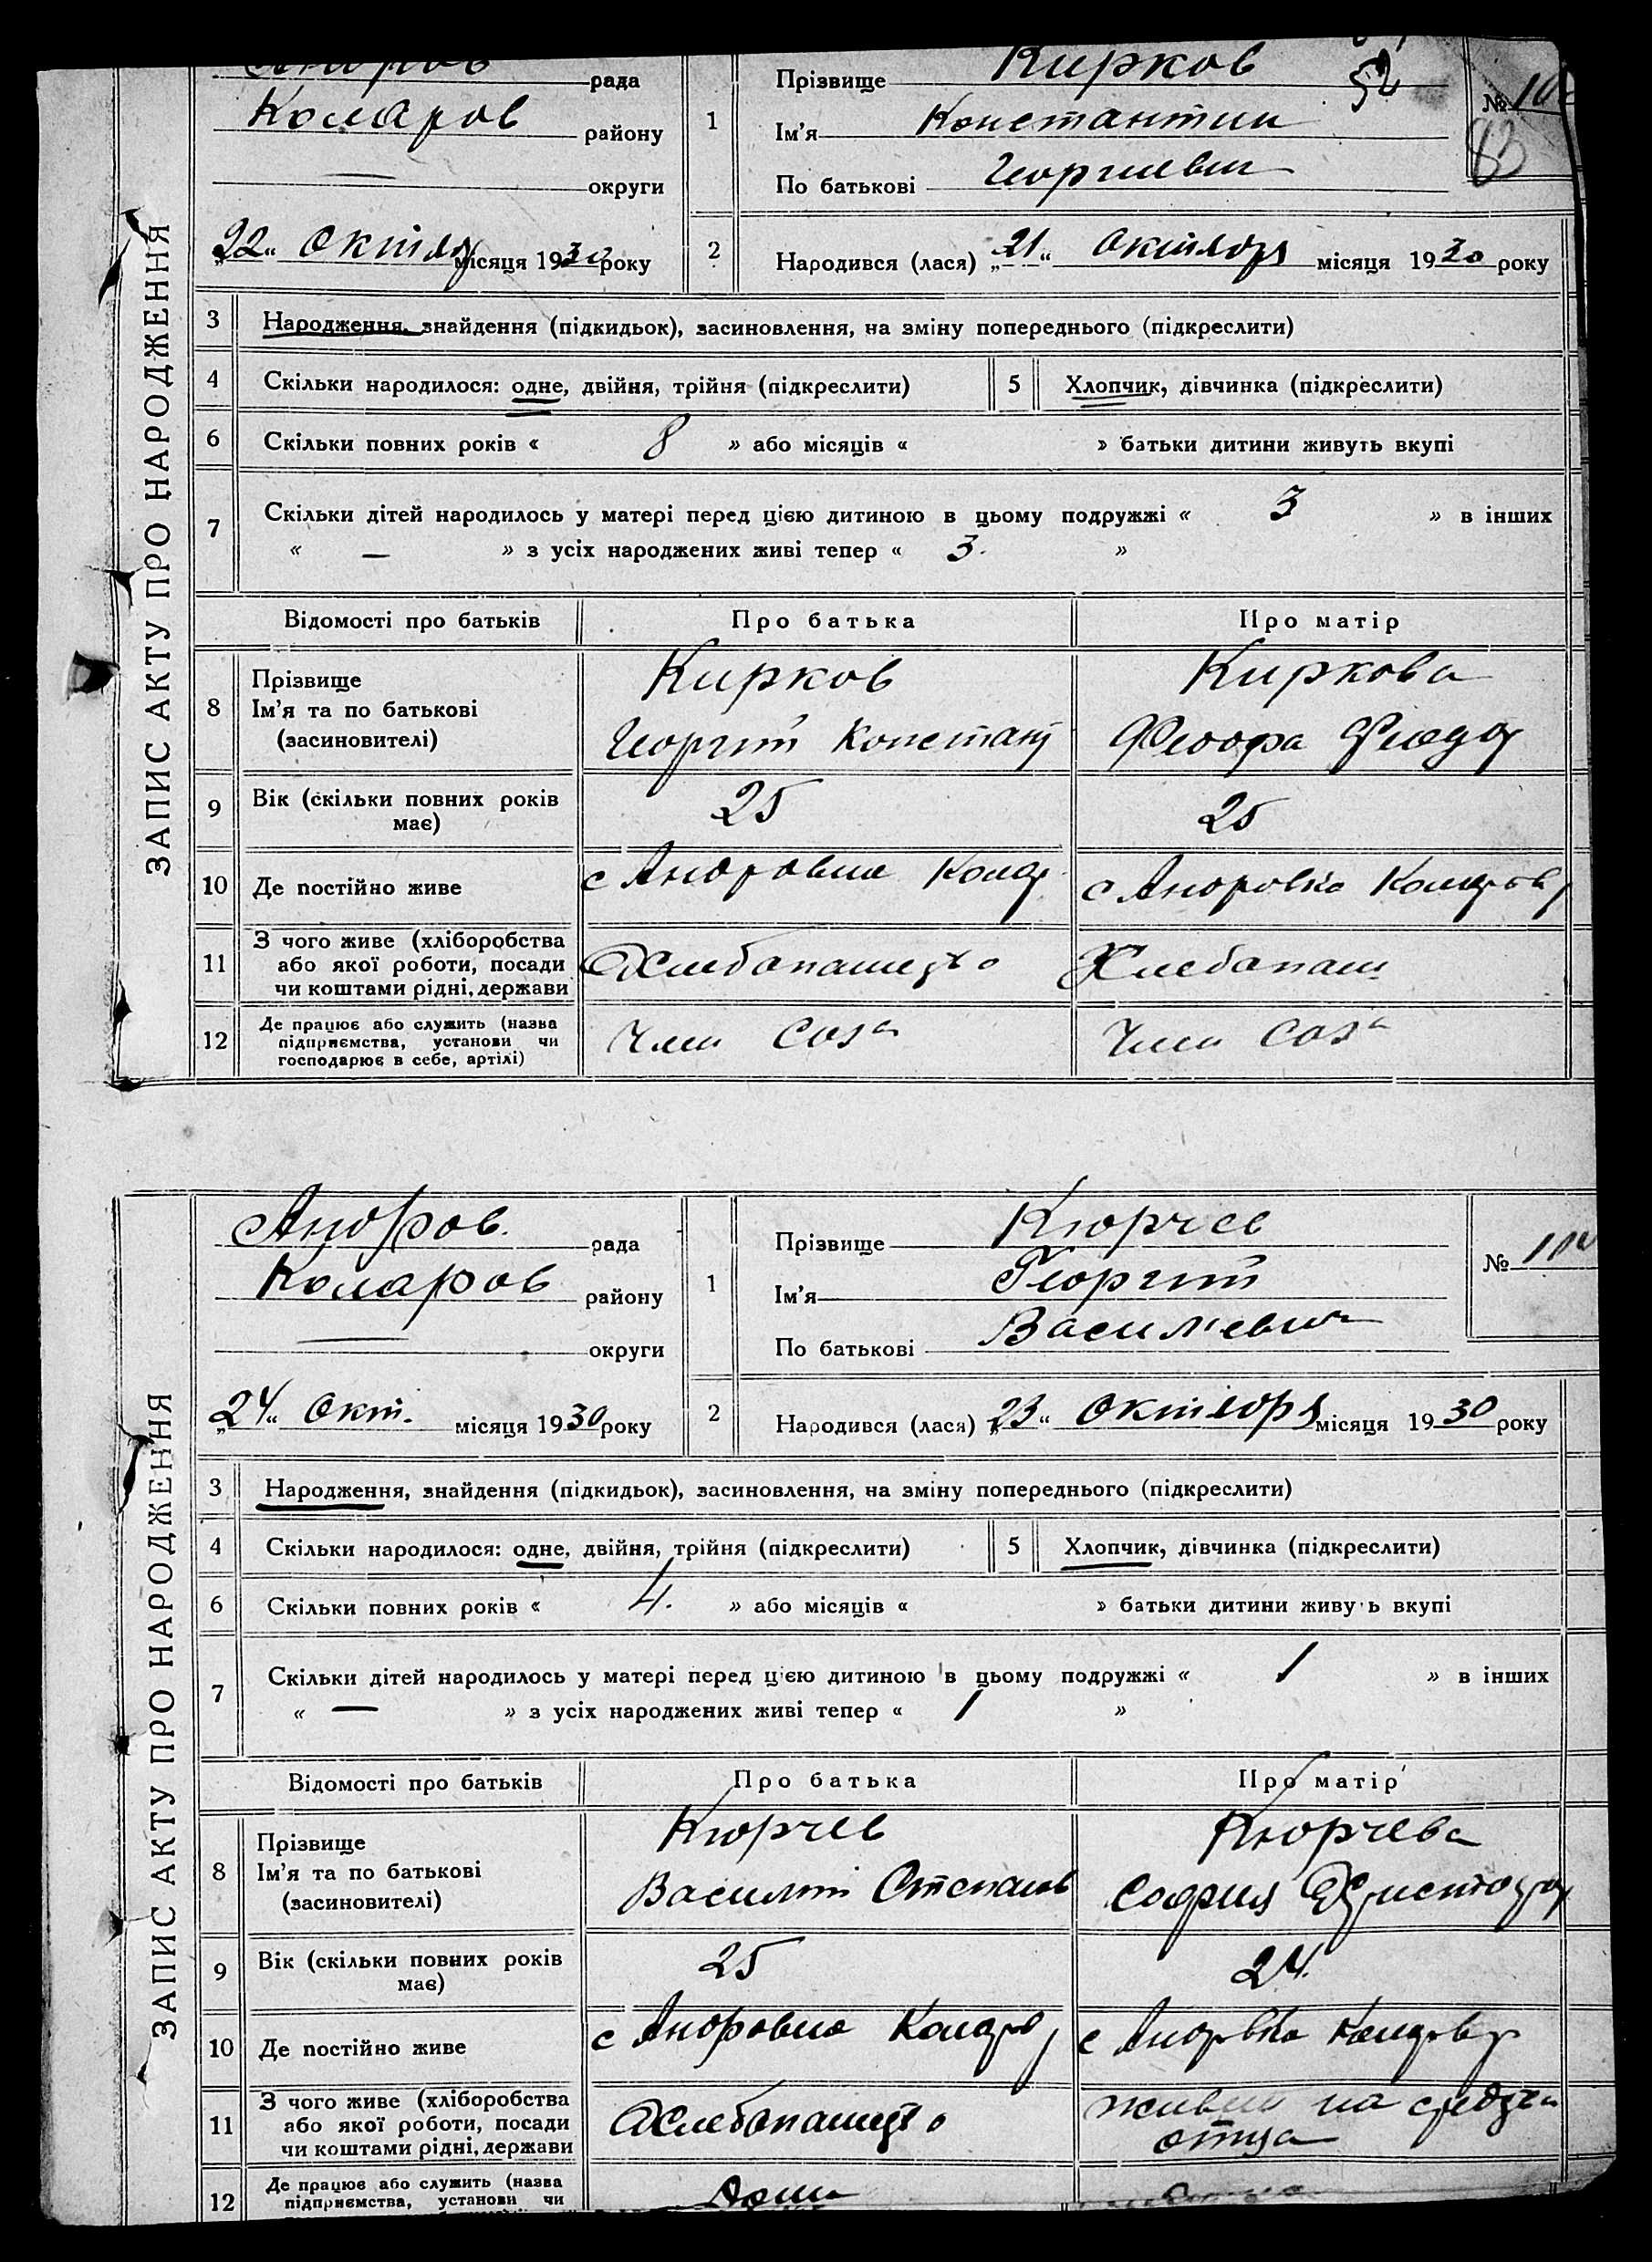 рада
Коларов району
округи
1
Прізвище Кирков
Ім'я Константин
По батькові Георгиевич
52
№
83
„22“ Октяб місяця 1930 року
2
Народився (лася) „21“ Октября місяця 1930 року
ЗАПИС АКТУ ПРО НАРОДЖЕННЯ
3 Народження, знайдення (підкидьок), засиновлення, на зміну попереднього (підкреслити)
4 Скільки народилося: одне, двійня, трійня (підкреслити) 5 Хлопчик, дівчинка (підкреслити)
6 Скільки повних років « 8 » або місяців « » батьки дитини живуть вкупі
7 Скільки дітей народилось у матері перед цією дитиною в цьому подружжі « 3 » в інших
« — » з усіх народжених живі тепер « 3. »
Відомості про батьків Про батька Про матір
8 Прізвище Ім'я та по батькові (засиновителі)
Кирков Киркова
Георгий Констант
9 Вік (скільки повних років має) 25 25
10 Де постійно живе с Андровка Колар с Андровка Коларов
11 З чого живе (хліборобства або якої роботи, посади чи коштами рідні, держави
Хлебопашество Хлебопаш
12 Де працює або служить (назва підприємства, установи чи господарює в себе, артілі)
Член Соза Член Соза
Андров. рада
Коларов району
округи
1
Прізвище Кюрчев
Ім'я Георгий
По батькові Васильевич
№
„24“ Окт. місяця 1930 року
2
Народився (лася) „23“ Октября місяця 1930 року
ЗАПИС АКТУ ПРО НАРОДЖЕННЯ
3 Народження, знайдення (підкидьок), засиновлення, на зміну попереднього (підкреслити)
4 Скільки народилося: одне, двійня, трійня (підкреслити) 5 Хлопчик, дівчинка (підкреслити)
6 Скільки повних років « 4. » або місяців « » батьки дитини живуть вкупі
7 Скільки дітей народилось у матері перед цією дитиною в цьому подружжі « 1 » в інших
« — » з усіх народжених живі тепер « 1 »
Відомості про батьків Про батька Про матір
8 Прізвище Ім'я та по батькові (засиновителі)
Кюрчев Кюрчева
Василий Степанов София
9 Вік (скільки повних років має) 25 24.
10 Де постійно живе с Андровка Коларов с Андровка Коларов
11 З чого живе (хліборобства або якої роботи, посади чи коштами рідні, держави
Хлебопашество на средства
отца
12 Де працює або служить (назва
підприємства, установи чи